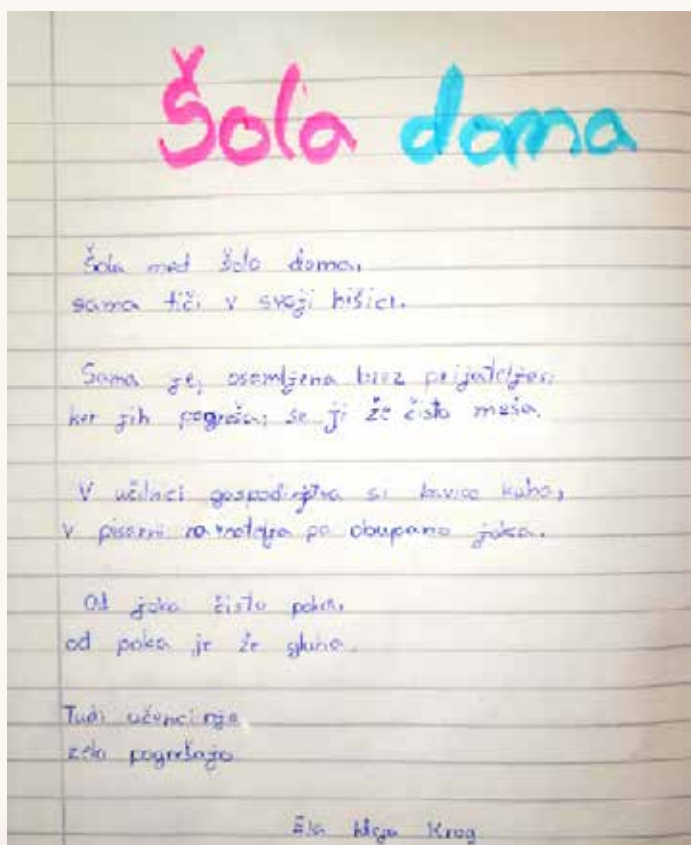 Šola doma
Šola med šolo doma,
sama tiči v svoji hišici.
Sama je, osamljena brez prijateljev,
ker jih pogreša, se ji že čisto meša.
V učilnici gospodinjstva si kavico kuha,
v pisarni ravnatelja pa obupano joka.
Od joka čisto poka,
od poka je že gluha.
Tudi učenci njo
zelo pogrešajo
Krog